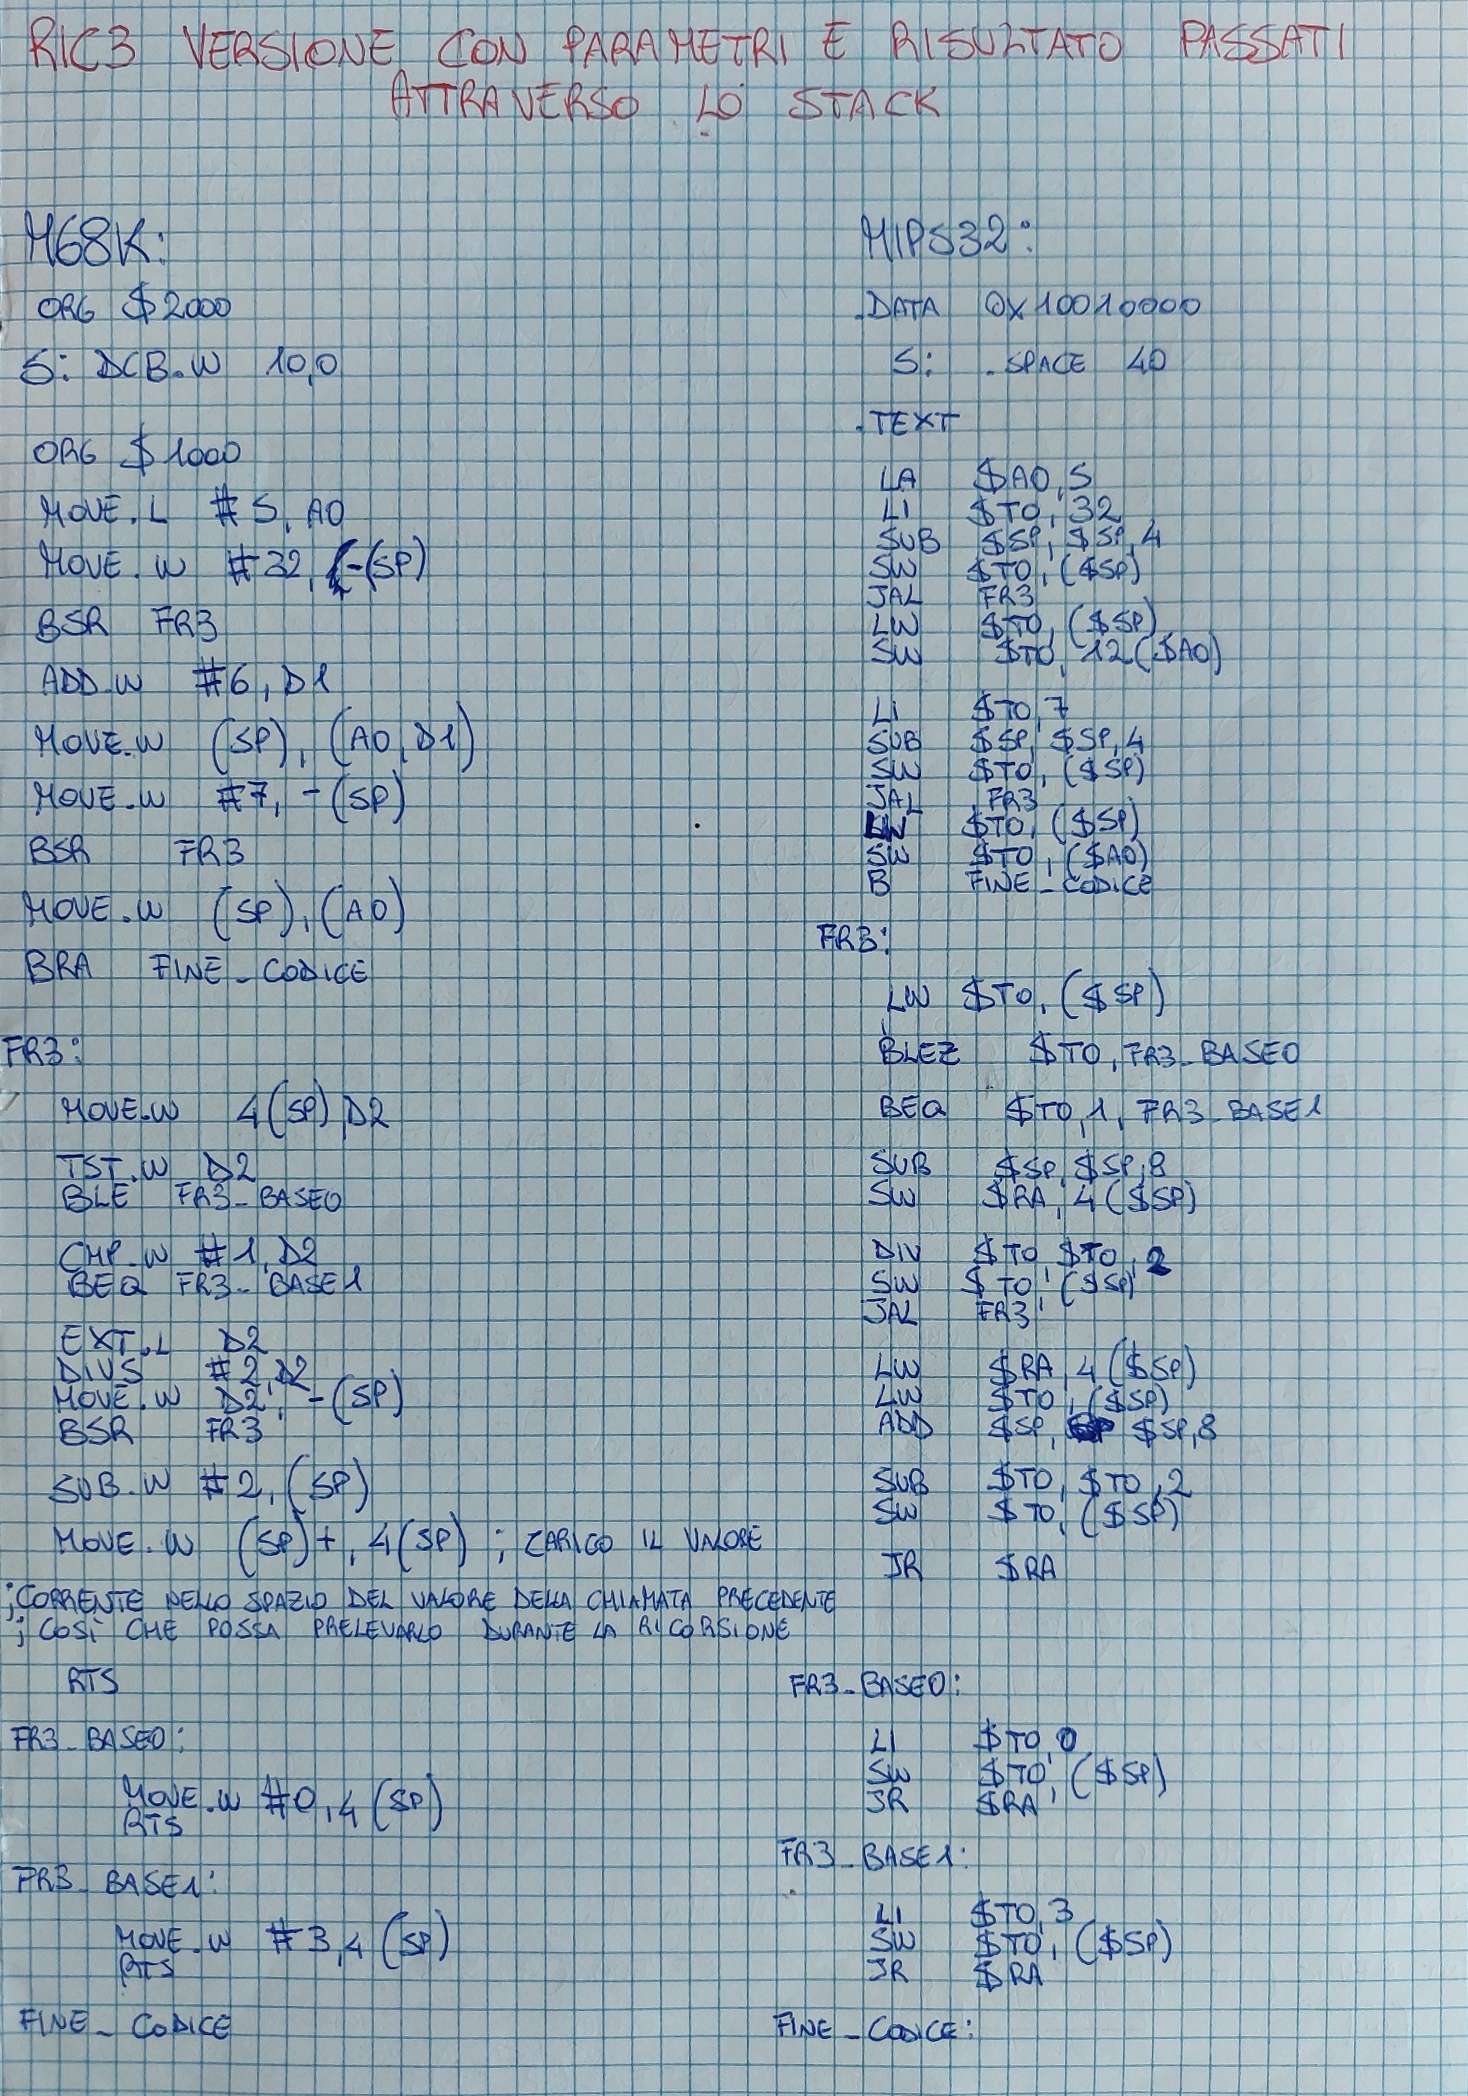 RIC3 VERSIONE CON PARAMETRI E RISULTATO PASSATI
ATTRAVERSO LO STACK
M68K:
ORG $2000
S: DCB.W 10,0
ORG $1000
MOVE.L #S, A0
MOVE.W #32, -(SP)
BSR FR3
ADD.W #6, D1
MOVE.W (SP), (A0, D1)
MOVE.W #7, -(SP)
BSR FR3
MOVE.W (SP), (A0)
BRA FINE_CODICE
FR3:
MOVE.W 4(SP) D2
TST.W D2
BLE FR3_BASE0
CMP.W #1, D2
BEQ FR3_BASE1
EXT.L D2
DIVS #2, D2
MOVE.W D2, -(SP)
BSR FR3
SUB.W #2, (SP)
MOVE.W (SP)+, 4(SP) ; CARICO IL VALORE
;CORRENTE NELLO SPAZIO DEL VALORE DELLA CHIAMATA PRECEDENTE
; COSÌ CHE POSSA PRELEVARLO DURANTE LA RICORSIONE
RTS
FR3_BASE0:
MOVE.W #0, 4(SP)
RTS
FR3_BASE1:
MOVE.W #3, 4(SP)
RTS
FINE_CODICE
MIPS32:
.DATA 0X10010000
S: .SPACE 40
.TEXT
LA $A0, S
LI $T0, 32
SUB $SP, $SP, 4
SW $T0, ($SP)
JAL FR3
LW $T0, ($SP)
SW $T0, 12($A0)
LI $T0, 7
SUB $SP, $SP, 4
SW $T0, ($SP)
JAL FR3
LW $T0, ($SP)
SW $T0, ($A0)
B FINE_CODICE
FR3:
LW $T0, ($SP)
BLEZ $T0, FR3_BASE0
BEQ $T0, 1, FR3_BASE1
SUB $SP, $SP, 8
SW $RA, 4($SP)
DIV $T0, $T0, 2
SW $T0, ($SP)
JAL FR3
LW $RA, 4($SP)
LW $T0, ($SP)
ADD $SP, $SP, 8
SUB $T0, $T0, 2
SW $T0, ($SP)
JR $RA
FR3_BASE0:
LI $T0, 0
SW $T0, ($SP)
JR $RA
FR3_BASE1:
LI $T0, 3
SW $T0, ($SP)
JR $RA
FINE_CODICE: